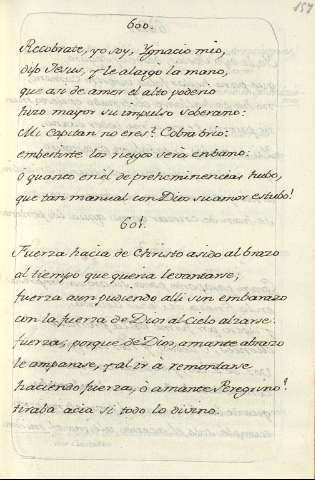 157
600.
Recobrate, yo soy, Ygnacio mio,
dijo Jesus, y le alargò la mano,
que asi de amor el alto poderio
hizo mayor su impulso soberano:
Mi Capitan no eres? Cobra brio:
embestirte los riesgos serà en bano:
ò quanto en èl de prehominencias hubo,
que tan manual con Dios su amor estubo!
601.
Fuerza hacia de Christo asido al brazo
al tiempo que queria levantarse;
fuerza aun pudiendo alli sin embarazo
con la fuerza de Dios al Cielo alzarse.
fuerza; porque de Dios, amante abrazo
le amparase, y al ir à remontarse
haciendo fuerza, ò amante Peregrino!
tiraba acia si todo lo divino.